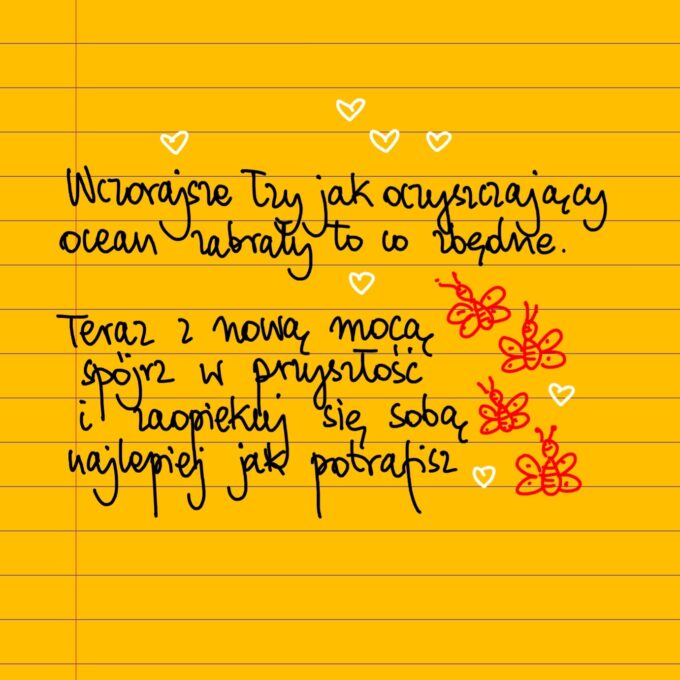 Wczorajsze łzy jak oczyszczający
ocean zabrały to co zbędne.
Teraz z nową mocą
spójrz w przyszłość
i zaopiekuj się sobą
najlepiej jak potrafisz